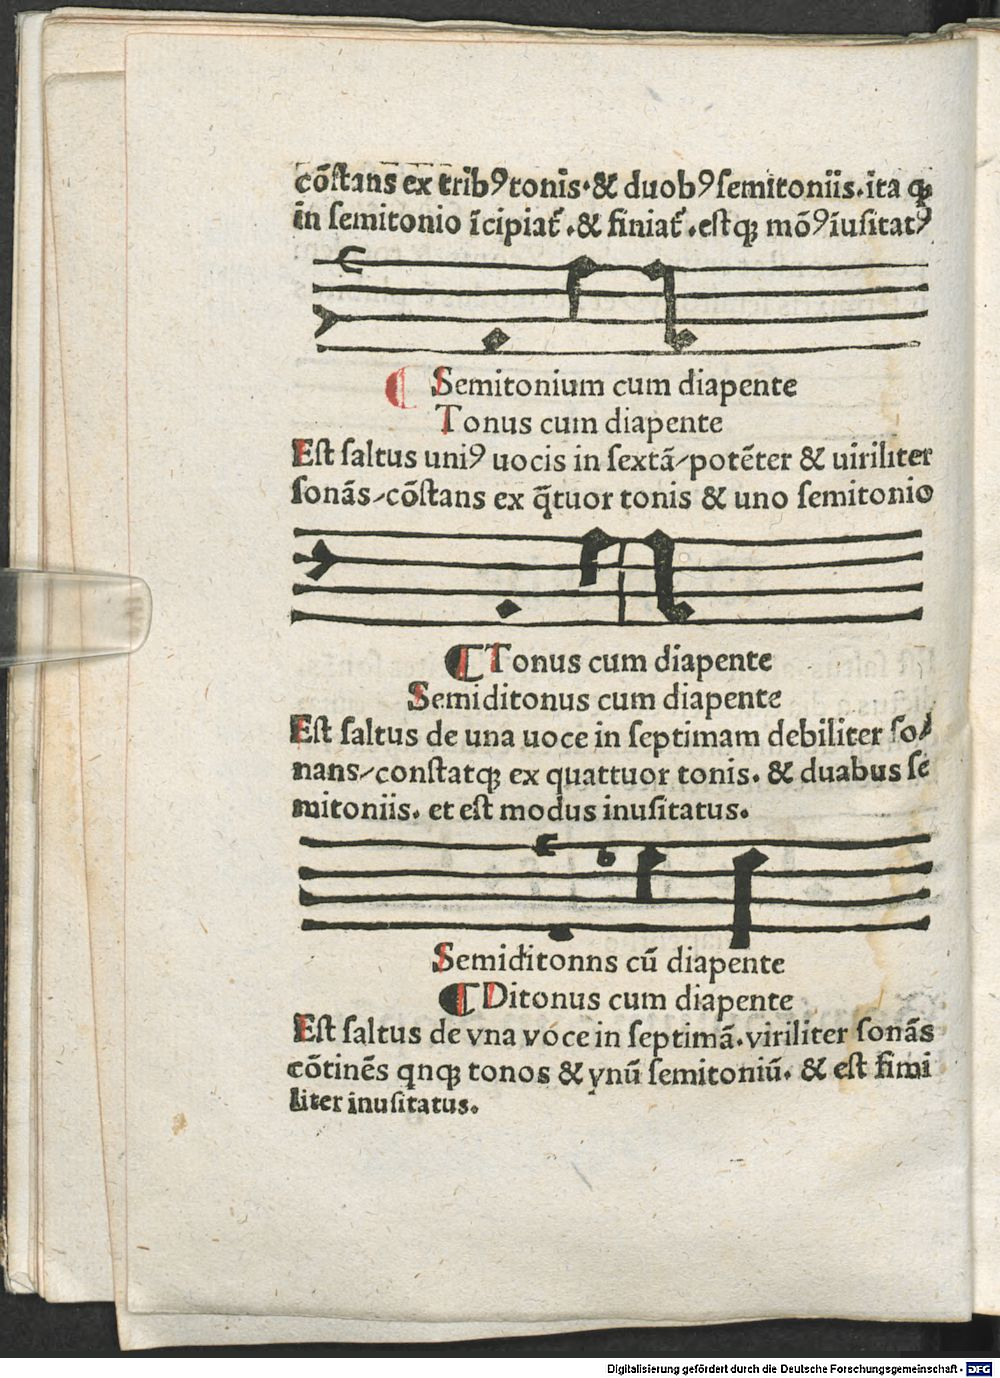 cõſtans ex tribꝰ tonis·& duobꝰ ſemitoniis.ita ꝙ
in ſemitonio ĩcipiat᷑ .& finiat᷑ .eſtqꝫ mõꝰ ĩuſitatꝰ
¶ Semitonium cum diapente
Tonus cum diapente
Eſt ſaltus uniꝰ uocis in ſextã/potẽter & uiriliter
ſonãs/cõſtans ex q̃tuor tonis & uno ſemitonio
b
¶ Tonus cum diapente
Semiditonus cum diapente
Eſt ſaltus de una uoce in ſeptimam debiliter ſo/
nans/conſtatqꝫ ex quattuor tonis. & duabus ſe
mitoniis. et eſt modus inuſitatus.
Semiditonns cũ diapente
¶ Ditonus cum diapente
Eſt ſaltus de vna voce in ſeptimã.viriliter ſonãs
cõtinẽs qnqꝫ tonos & ynũ ſemitoniũ. & eſt ſimi
liter inuſitatus.
Digitalisierung gefördert durch die Deutsche Forschungsgemeinschaft - DFG